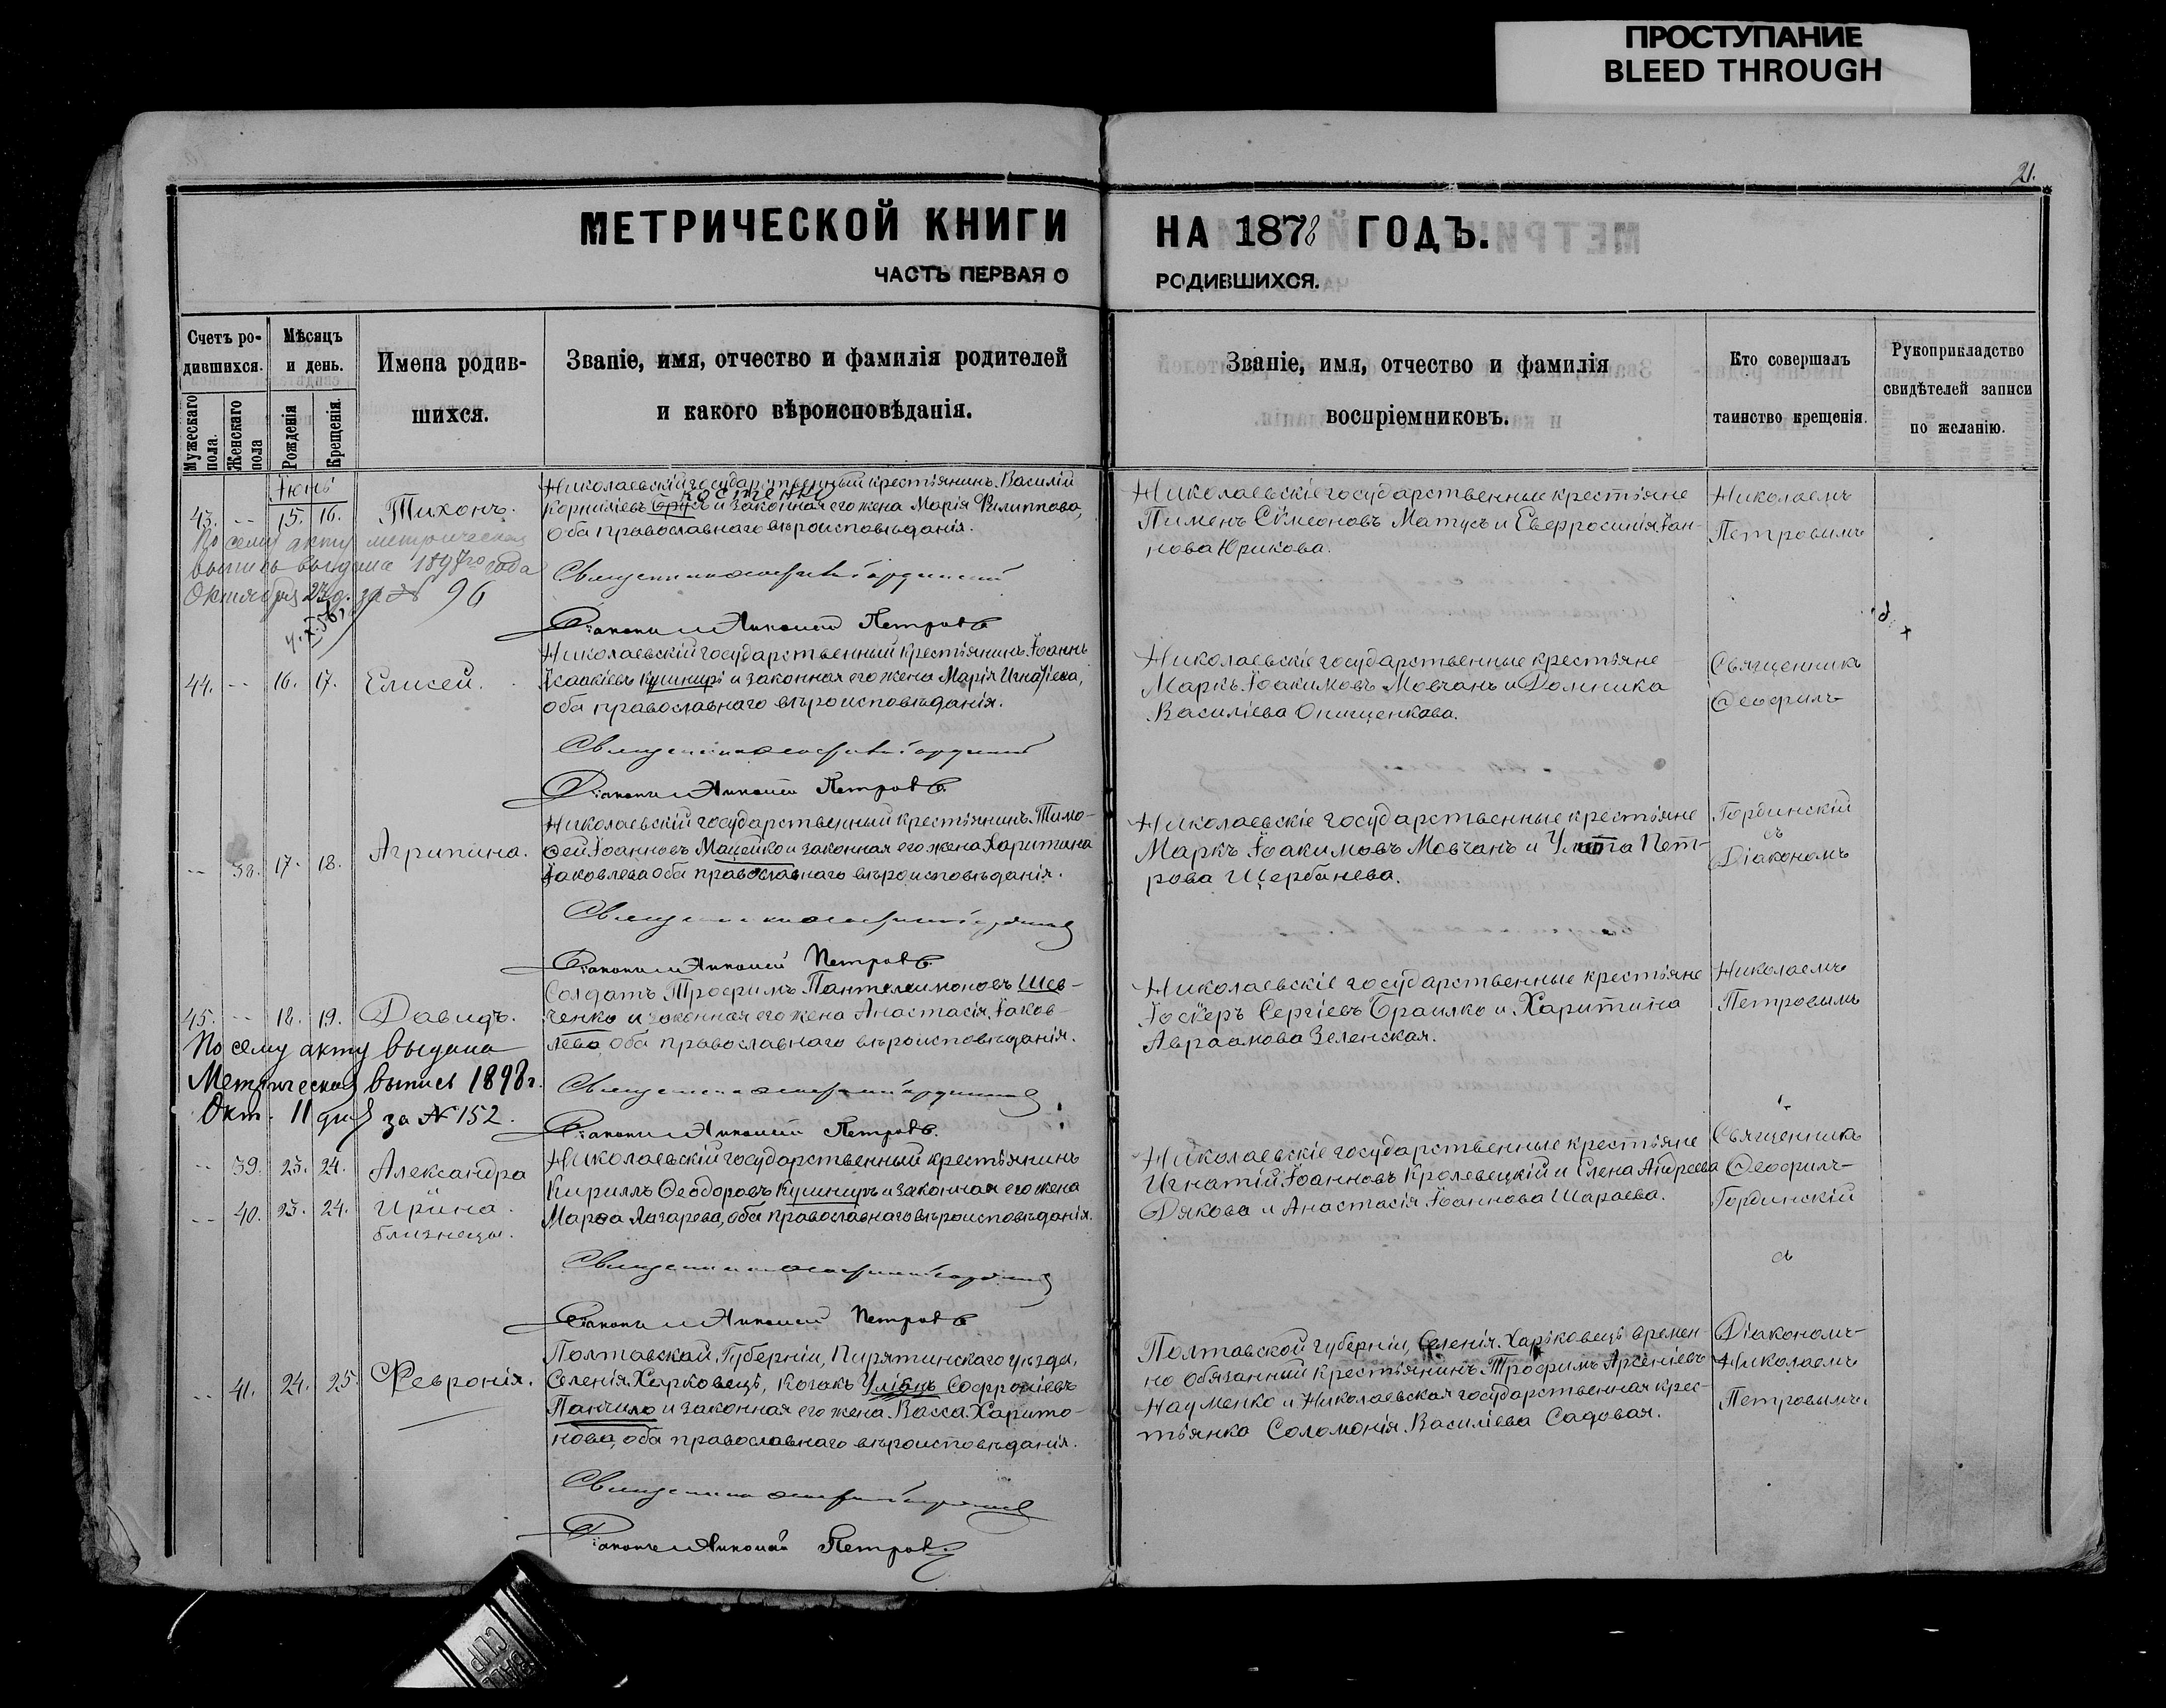 ПРОСТУПАНИЕ
BLEED THROUGH
21.
МЕТРИЧЕСКОЙ КНИГИ НА 1878 ГОДЪ.
ЧАСТЬ ПЕРВАЯ О РОДИВШИХСЯ.
Счетъ ро-
дившихся.
Мужескаго пола.
Женскаго пола
Мѣсяцъ
и день.
Рожденія
Крещенія.
Имена родив-
шихся.
Званіе, имя, отчество и фамилія родителей
и какого вѣроисповѣданія.
Званіе, имя, отчество и фамилія
воспріемниковъ.
Кто совершалъ
таинство крещенія.
Рукоприкладство
свидѣтелей записи
по желанію.
Іюнь
43. -- 15. 16. Тихонъ.
По сему акту метрическая
выпись выдана 1897го года
Октября 27 д. за № 96
Николаевскій государственный крестьянинъ Василій
Костенко
Корниліевъ и законная его жена Марія Филиппова,
оба православнаго вѣроисповѣданія.
Діаконъ Николай Петровъ
Николаевскіе государственные крестьяне
Пименъ Сѵмеоновъ Матусъ и Евфросинія Іоан-
нова Юрикова.
Николаемъ
Петровымъ
44. -- 16. 17. Елисей.
Николаевскій государственный крестьянинъ Іоаннъ
Исаакіевъ Кушниръ и законная его жена Марія Игнатіева,
оба православнаго вѣроисповѣданія.
Діаконъ Николай Петровъ
Николаевскіе государственные крестьяне
Маркъ Іоакимовъ Мовчанъ и Домника
Василіева Онищенкова.
Священникъ
Ѳеофилъ
-- 38. 17. 18. Агрипина.
Николаевскій государственный крестьянинъ Тимо-
ѳей Іоанновъ Мацейко и законная его жена Харитина
Іаковлева оба православнаго вѣроисповѣданія.
Діаконъ Николай Петровъ
Николаевскіе государственные крестьяне
Маркъ Іоакимовъ Мовчанъ и Пет-
рова Щербанева.
Гординскій
съ
Діакономъ
45. -- 18. 19. Давидъ.
По сему акту выдана
Метрическая выпись 1898 г.
Окт. 11 дня за № 152.
Солдатъ Трофимъ Пантелеимоновъ Шев-
ченко и законная его жена Анастасія Іаков-
лева, оба православнаго вѣроисповѣданія.
Діаконъ Николай Петровъ.
Николаевскіе государственные крестьяне
Сергіевъ Браилко и Харитина
Авраамова Зеленская.
Николаемъ
Петровымъ
-- 39. 23. 24. Александра
-- 40. 23. 24. Ирина.
близнецы.
Николаевскій государственный крестьянинъ
Кириллъ Ѳеодоровъ Кушниръ и законная его жена
Марѳа Лазарева, оба православнаго вѣроисповѣданія.
Діаконъ Николай Петровъ
Николаевскіе государственные крестьяне
Игнатій Іоанновъ Кролевецкій и Елена Андреева
Дякова и Анастасія Іоаннова Шараева.
Священникъ
Ѳеофилъ
Гординскій
съ
-- 41. 24. 25. Февронія.
Полтавской Губерніи, Пирятинскаго уѣзда,
Селенія Харковецъ, козакъ Софроніевъ
Панчило и законная его жена Васса Харито-
нова, оба православнаго вѣроисповѣданія.
Діаконъ Николай Петровъ
Полтавской губерніи, Селенія Харьковецъ времен-
но обязанный крестьянинъ Трофимъ Арсеніевъ
Науменко и Николаевская государственная крес-
тьянка Соломонія Василіева Садовая.
Діакономъ
Николаемъ
Петровымъ.